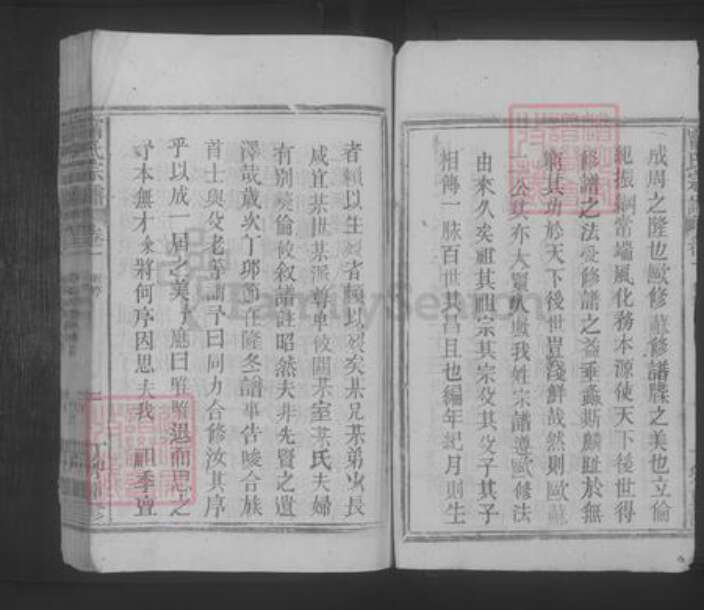 成周之隆也歐修蘇修譜牒之美也立倫
紀振綱常端風化務本源使天下後世得
修譜之法受修譜之益垂螽斯麟趾於無
窮其功於天下後世豈淺鮮哉然則歐蘇
二公其亦大聖人歟我姓宗譜遵歐修法
由來久矣祖其祖宗其宗父其父子其子
相傳一脉百世其昌且也編年紀月則生
者賴以生歿者賴以歿矣某兄某弟
長
咸宜某世某派尊卑攸關某室某氏夫婦
有別彝倫攸叙譜註昭然夫非先賢之遺
澤哉歲次丁卯節在隆冬譜事告竣合族
首士與父老等謂予曰同力合修汝其序
乎以成一屆之美予應曰唯唯退而思之
予本無才
將何序因思夫我祖季
FamilySearch